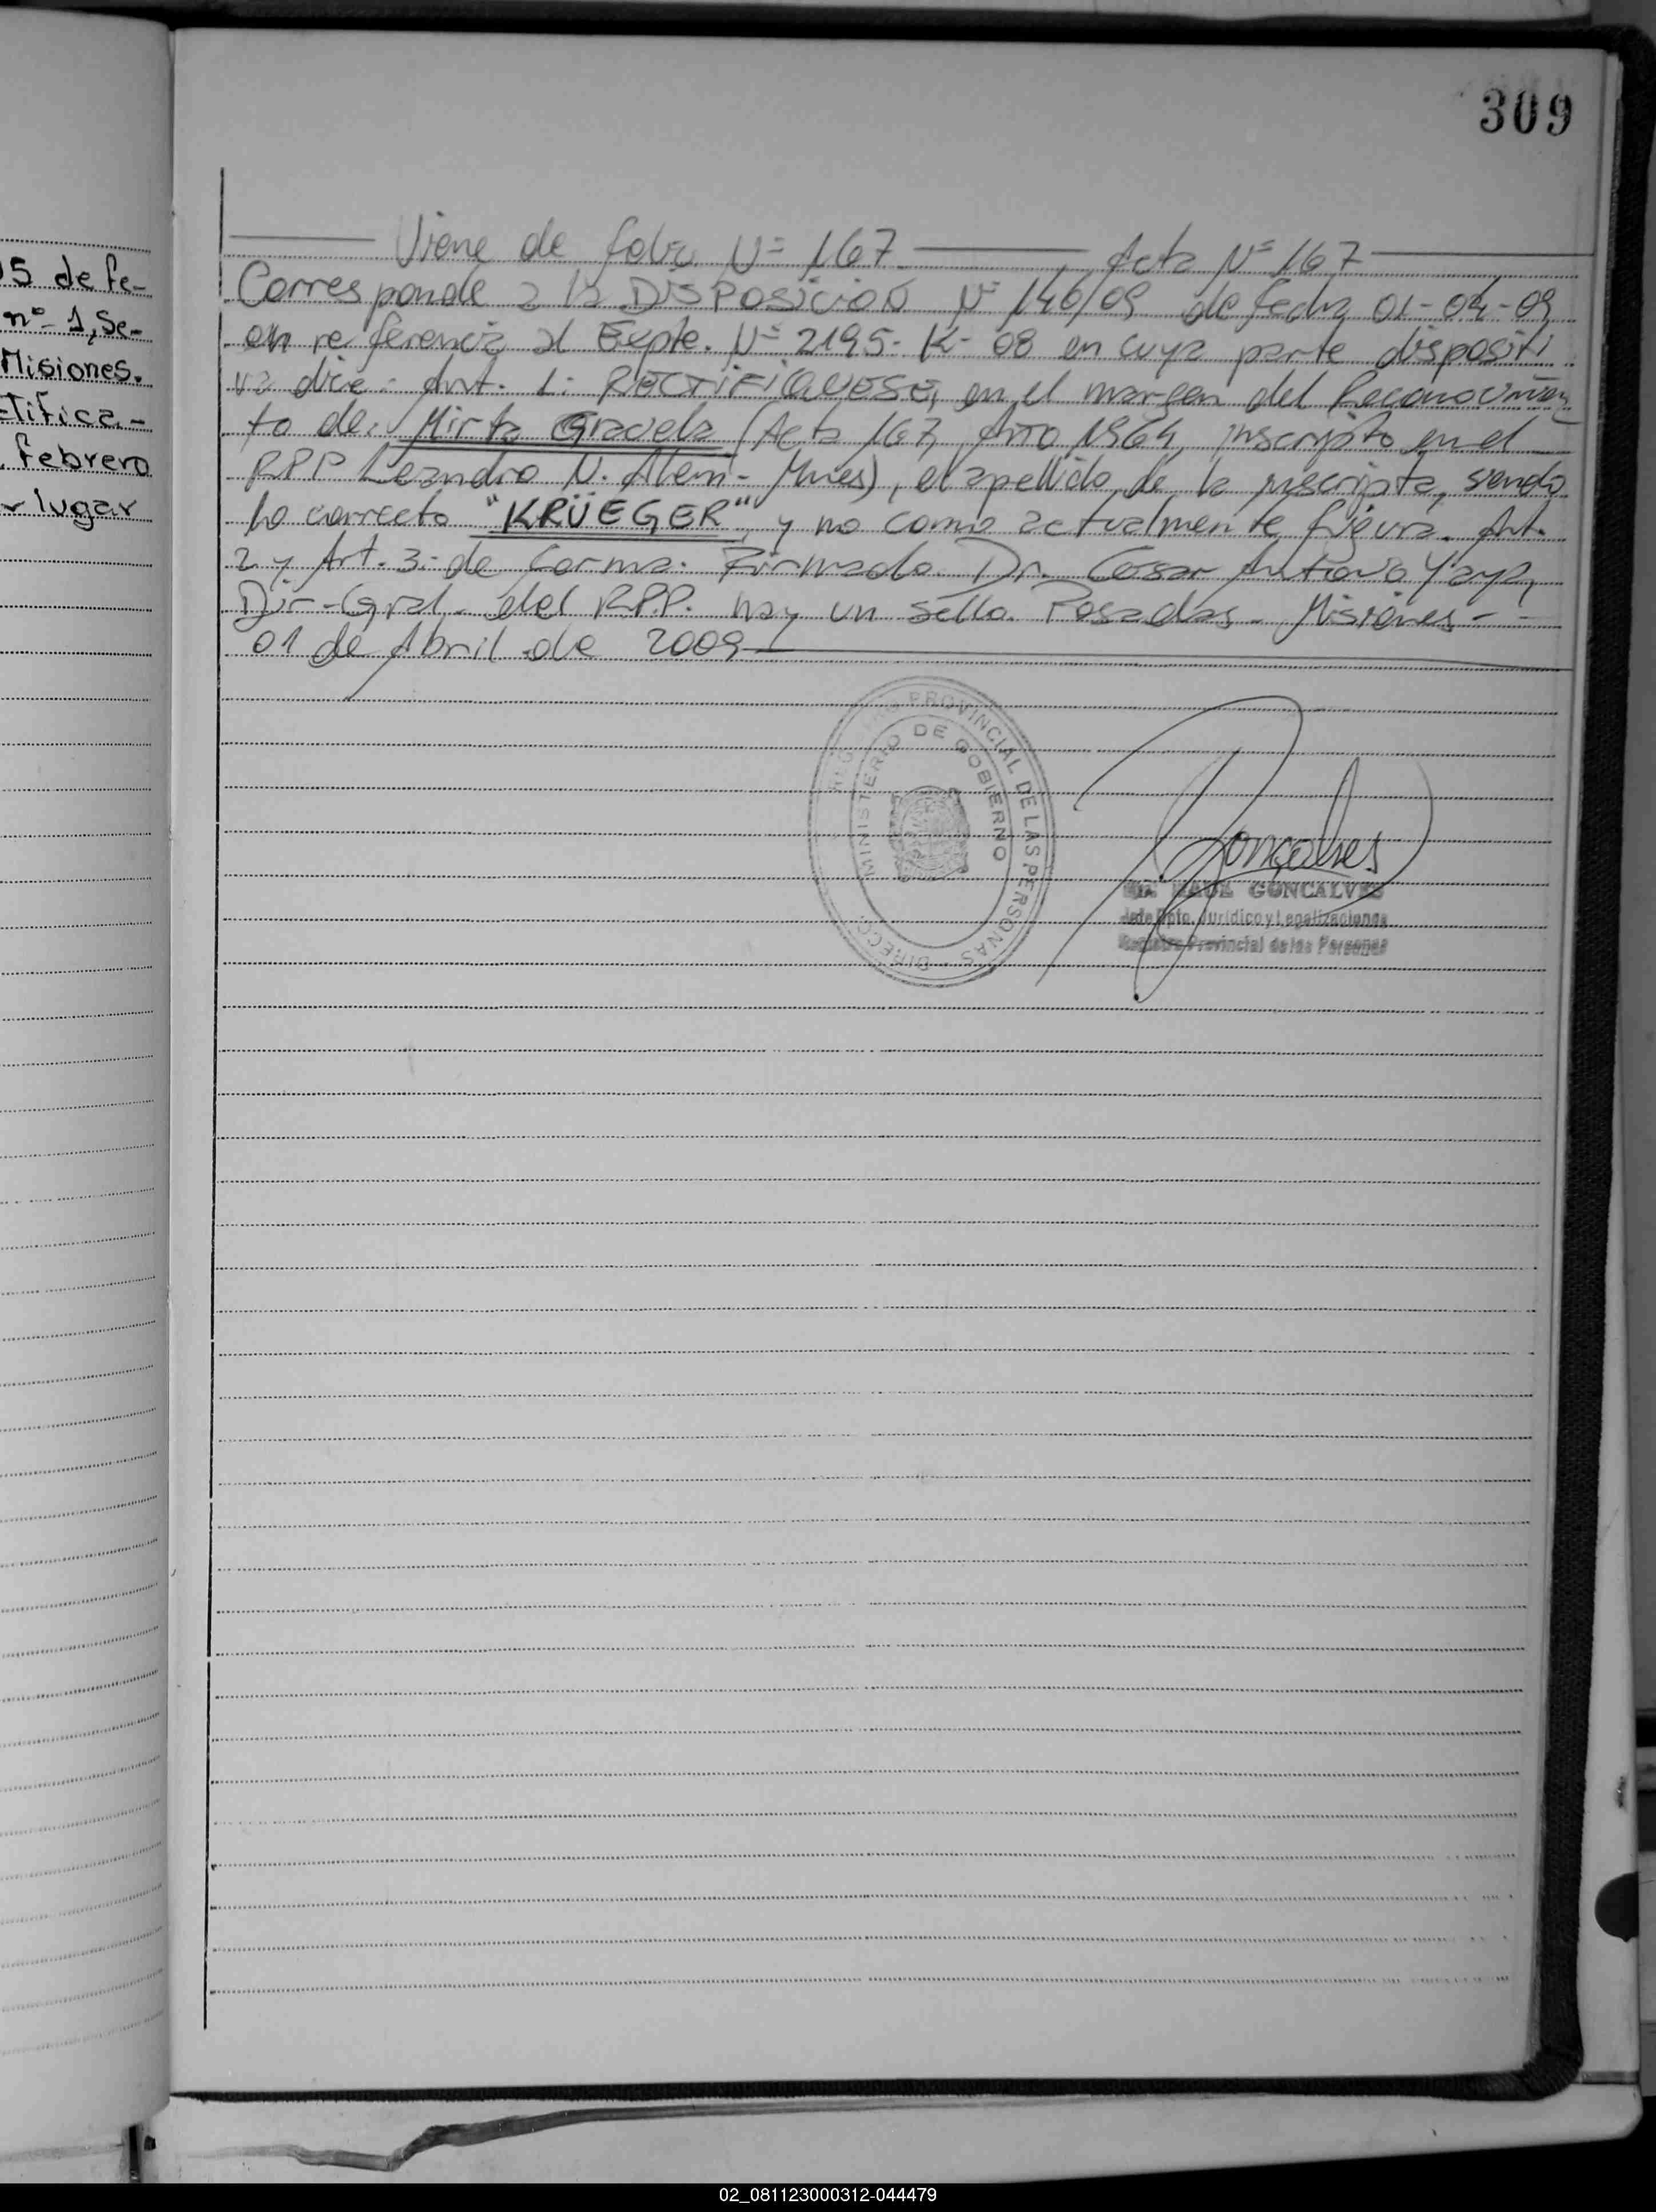 309
Viene de folio Nº 167 Acta Nº 167
Corresponde a la DISPOSICION Nº 140/09 de fecha 01-04-09
en referencia al Expte. Nº 2195-K-08 en cuya parte dispositi
va dice: Art. 1: RECTIFIQUESE, en el margen del Reconocimien
to de: Mirta Graciela (Acta 167, Año 1964, inscripto en el
RPP Leandro N. Alem-Mnes), el apellido de la inscripta, siendo
lo correcto "KRÜEGER", y no como actualmente figura. Art.
2 y Art. 3: de forma. Firmado Dr. Cesar Antonio Yaya,
Dir-Gral. del R.P.P. hay un sello. Posadas - Misiones - -
01 de Abril de 2009
DIRECC. PROVINCIAL DE LAS PERSONAS
MINISTERIO DE GOBIERNO
Gonçalves
RAUL GONCALVES
Jefe Dpto. Jurídico y Legalizaciones
Registro Provincial de las Personas
15 de fe-
nº 1, Se-
Misiones.
ctifica-
febrero
r lugar
02_081123000312-044479